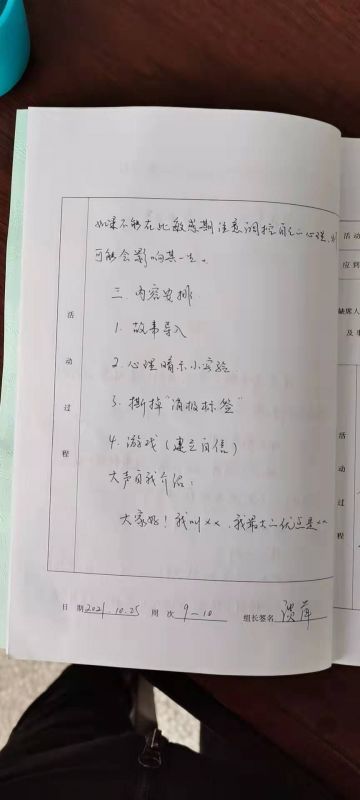 如果不能在此敏感期注意调控自己心理,
可能会影响其一生。
三、内容安排
1. 故事导入
2. 心理暗示小实验
3. 撕掉“消极标签”
4. 游戏(建立自信)
大声自我介绍:
大家好!我叫××,我最大的优点是××
活动过程
日期 2021.10.25 周次 9-10 组长签名
活动
应到
缺席人
及事
活动
过程